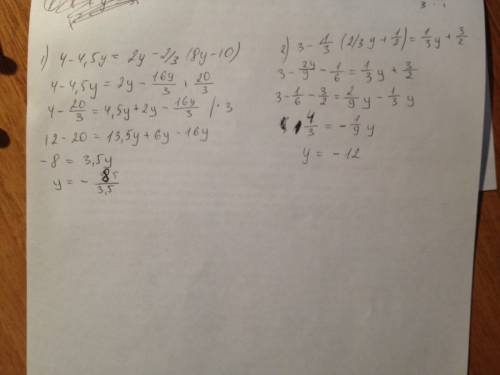 1) 4-4,5y = 2y - 2/3 (8y-10)
4-4,5y = 2y - 16y/3 + 20/3
4 - 20/3 = 4,5y + 2y - 16y/3 | · 3
12 - 20 = 13,5y + 6y - 16y
-8 = 3,5y
y = - 8/3,5
2) 3 - 1/3 (2/3 y + 1/2) = 1/3 y + 3/2
3 - 2y/9 - 1/6 = 1/3 y + 3/2
3 - 1/6 - 3/2 = 2/9 y - 1/3 y
4/3 = - 1/9 y
y = - 12